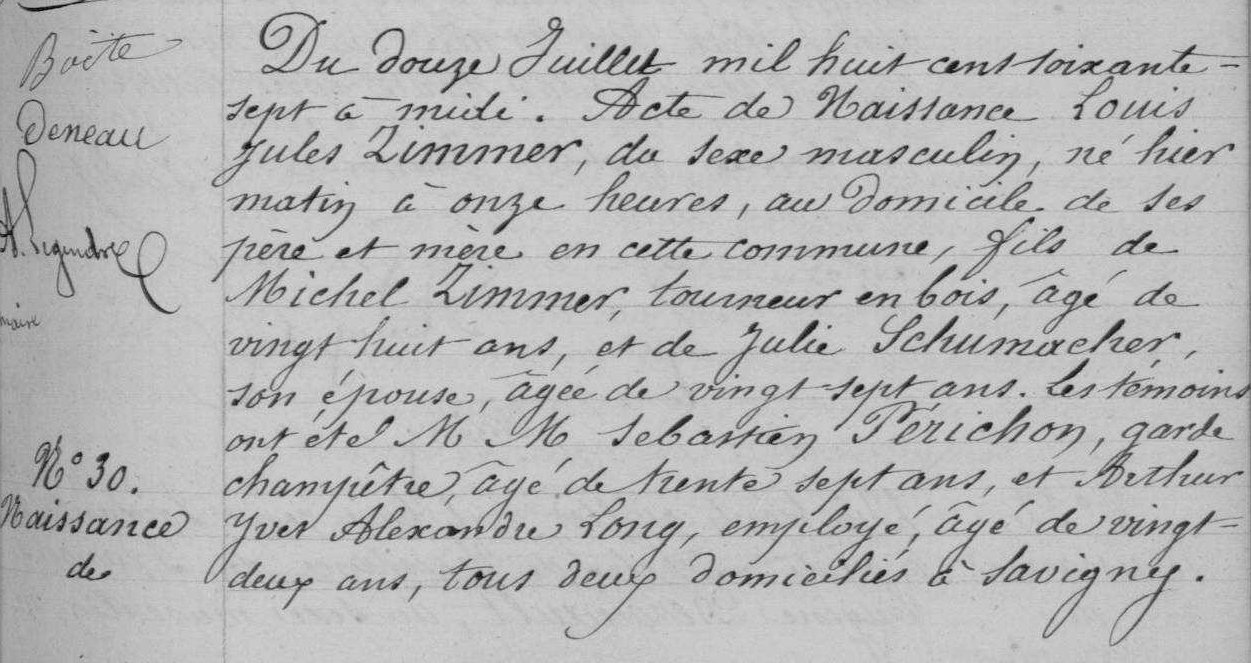 Boëte
Deneau
A. Legendre
maire
N° 30.
Naissance
de
Du douze Juillet mil huit cent soixante-
sept à midi. Acte de Naissance Louis
Jules Zimmer, du sexe masculin, né hier
matin à onze heures, au domicile de ses
père et mère en cette commune, fils de
Michel Zimmer, tourneur en bois, âgé de
vingt huit ans, et de Julie Schumacher,
son épouse, âgée de vingt-sept ans. Les témoins
ont été M M Sebastien Périchon, garde
champêtre, âgé de trente sept ans, et Arthur
Yves Alexandre Long, employé, âgé de vingt-
deux ans, tous deux domiciliés à Savigny.